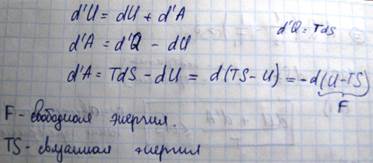 d'U = dU + d'A
d'Q = TdS
d'A = d'Q - dU
d'A = TdS - dU = d(TS - U) = -d(U-TS)
F
F - свободная энергия.
TS - связанная энергия